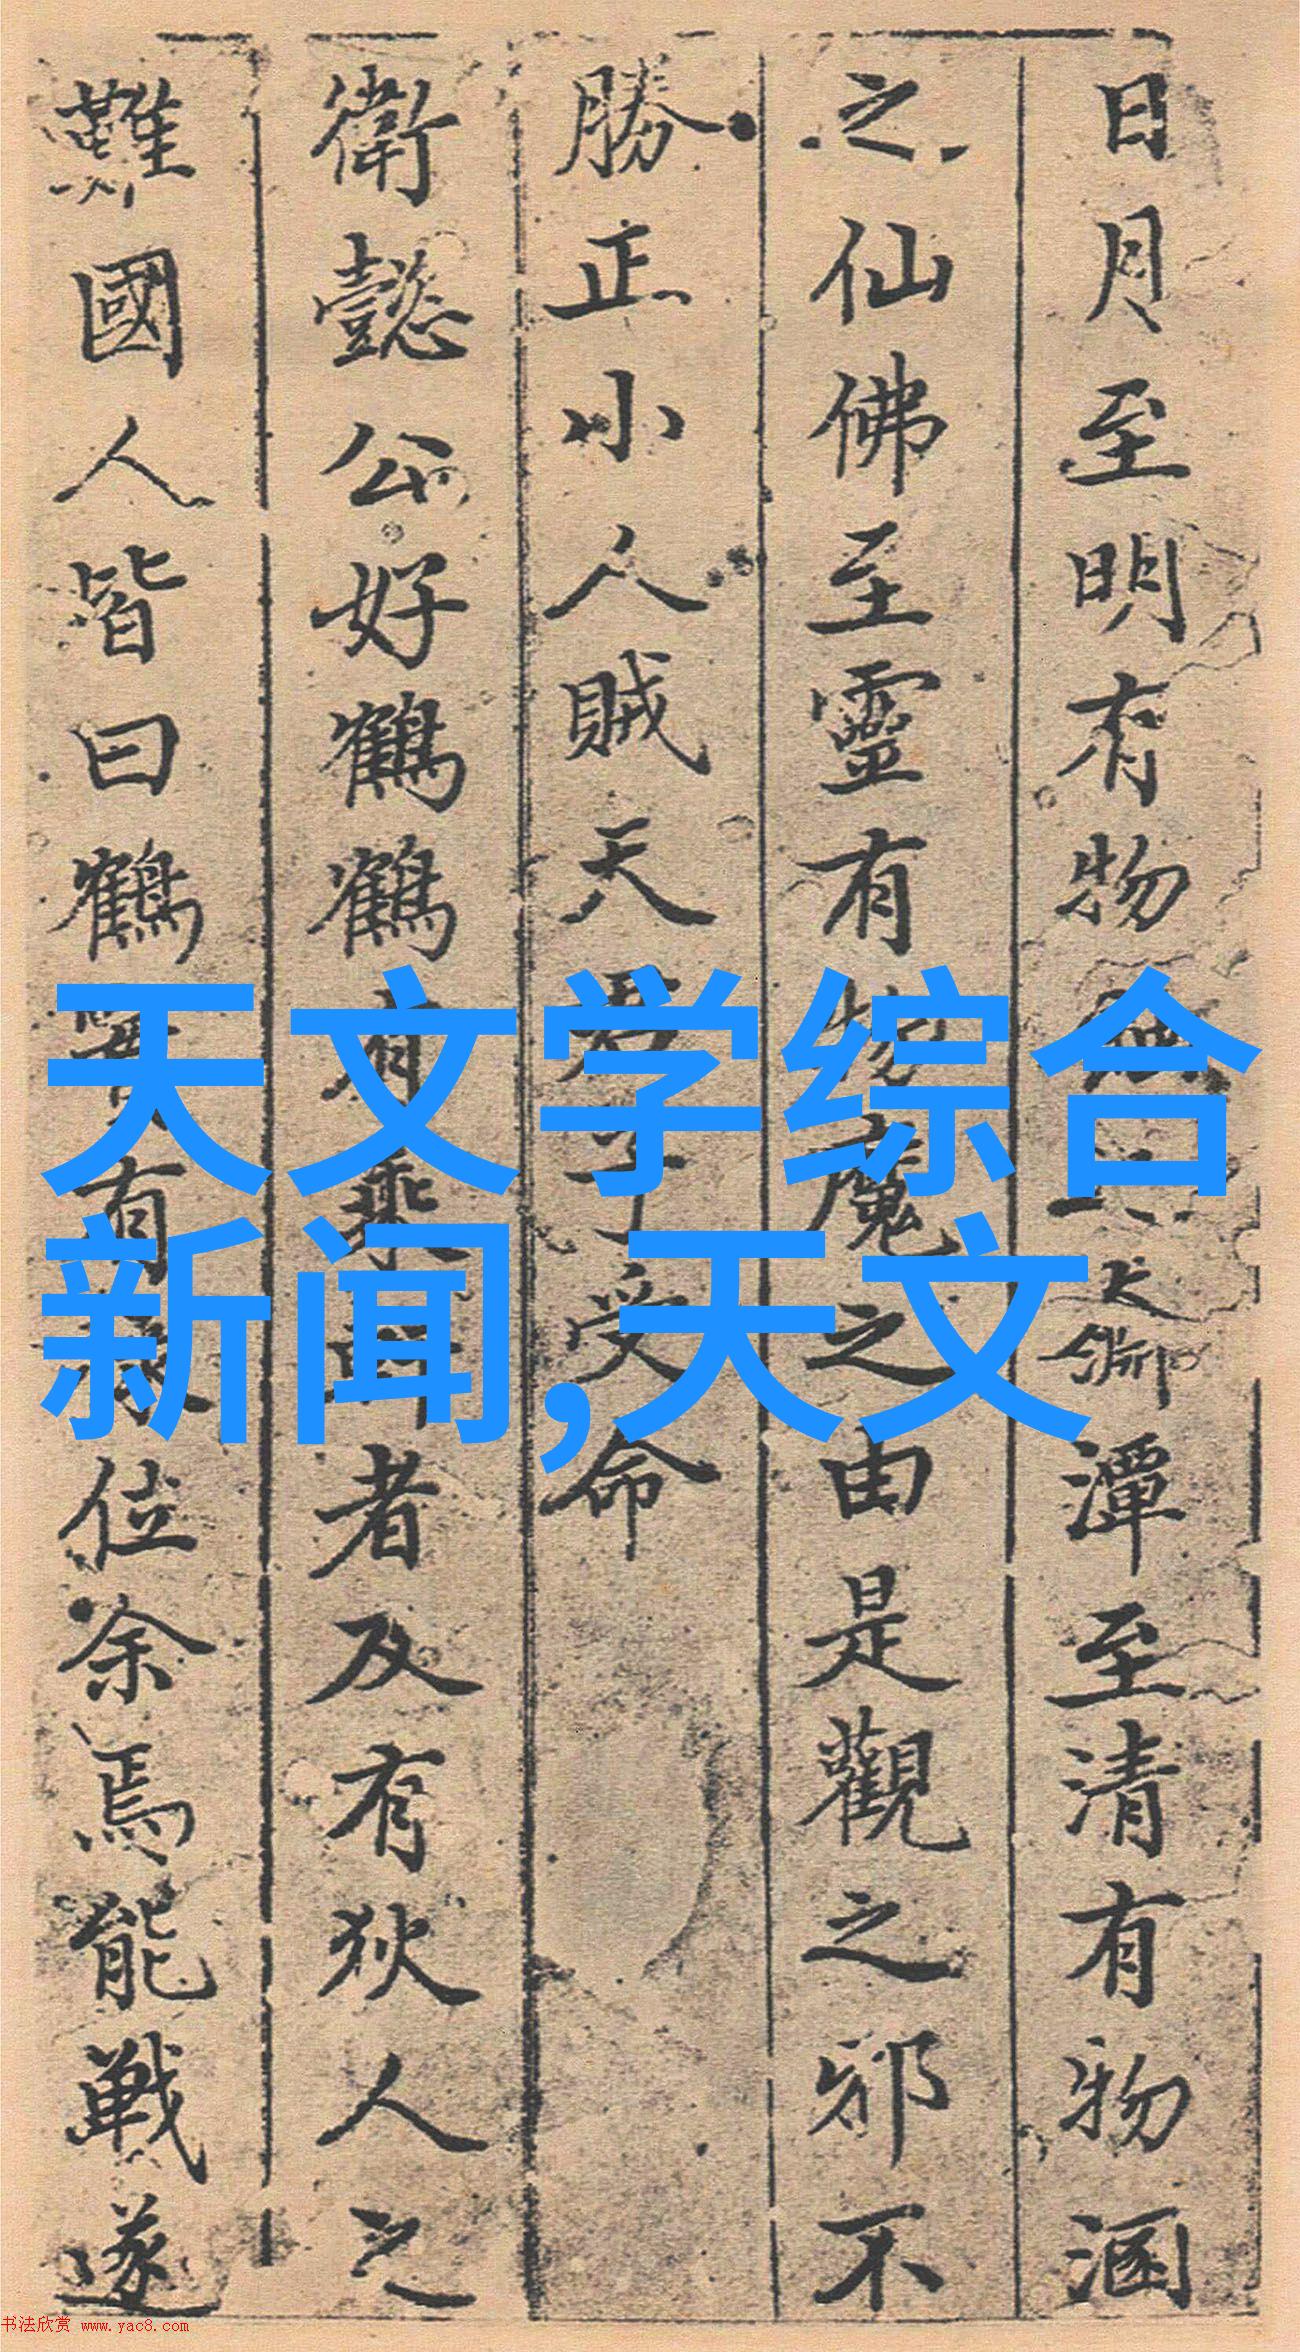 日月至明有物無之大鄉潭至清有物溷
之仙佛至靈有物魔之由是觀之邪不
勝正小人賊天君子受命
衛懿公好鶴鶴有乘軒者及有狄人之
難國人皆曰鶴實有祿位余焉能戰遂
天文学综合
新闻,天文
书法欣赏 www.yac8.com